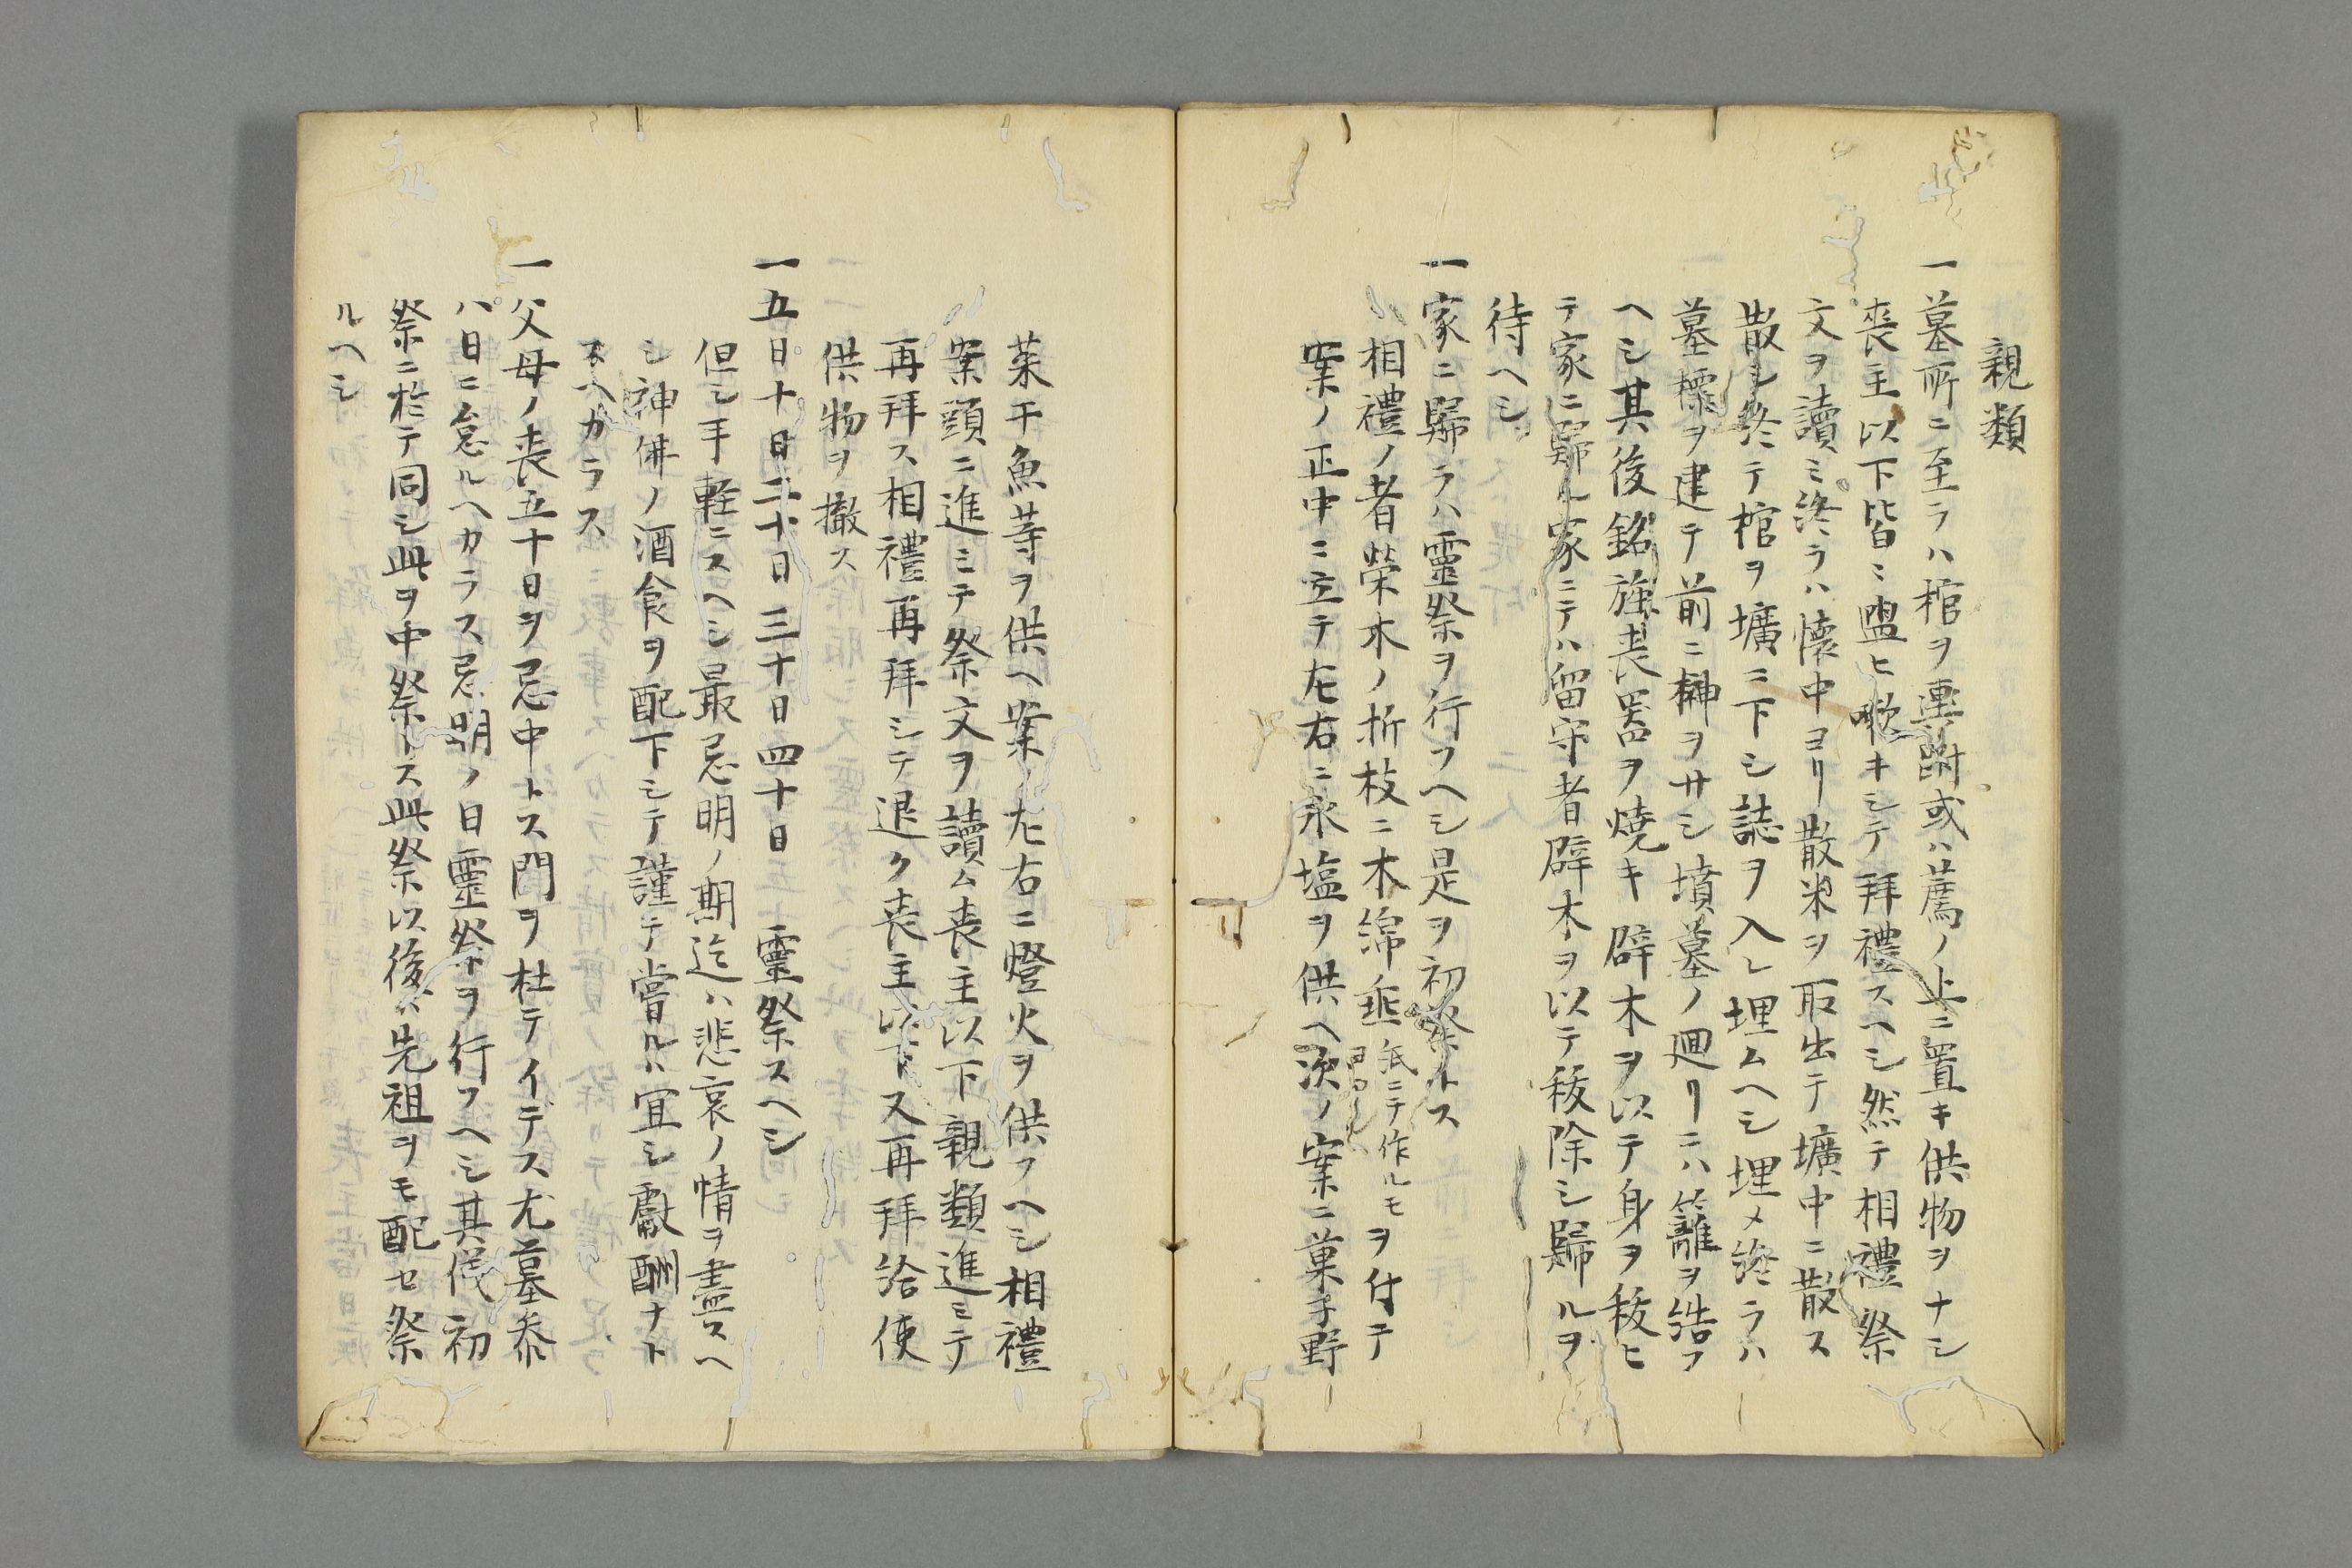 親類
一墓所ニ至ラハ棺ヲ轝跗或ハ薦ノ上ニ置キ供物ヲナシ
喪主以下皆ミ盥ヒ嗽キシテ拜禮スヘシ然テ相禮祭
文ヲ讀ミ終ラハ懷中ヨリ散米ヲ取出テ壙中ニ散ス
散シ終テ棺ヲ壙ニ下シ誌ヲ入レ埋ムヘシ埋メ終ラハ
墓標ヲ建テ前ニ榊ヲサシ墳墓ノ廻リニハ籬ヲ結フ
ヘシ其後銘旌喪器ヲ燒キ辟木ヲ以テ身ヲ秡ヒ
テ家ニ歸ル家ニテハ留守者辟木ヲ以テ秡除シ歸ルヲ
待ヘシ
一家ニ歸ラハ靈祭ヲ行フヘシ是ヲ初祭トス
相禮ノ者榮木ノ折枝ニ木綿垂紙ニテ作ルモヲ付テ
案ノ正中ニ立テ左右ニ水塩ヲ供ヘ次ノ案ニ菓子野
菜干魚等ヲ供ヘ案ノ左右ニ燈火ヲ供フヘシ相禮
案頭ニ進ミテ祭文ヲ讀ム喪主以下親類進ミテ
再拜ス相禮再拜シテ退ク喪主以下又再拜給使
供物ヲ撤ス
一五日十日二十日三十日四十日 靈祭スヘシ
但シ手輕ニスヘシ最忌明ノ期迄ハ悲哀ノ情ヲ盡スヘ
シ神佛ノ酒食ヲ配下シテ謹テ嘗ルハ宜シ獻酬ナト
スヘカラス
一父母ノ喪五十日ヲ忌中トス門ヲ杜テイデス尤墓参
ハ日ニ怠ルヘカラス忌明ノ日靈祭ヲ行フヘシ其儀初
祭ニ於テ同シ此ヲ中祭トス此祭以後ハ先祖ヲモ配セ祭
ルヘシ